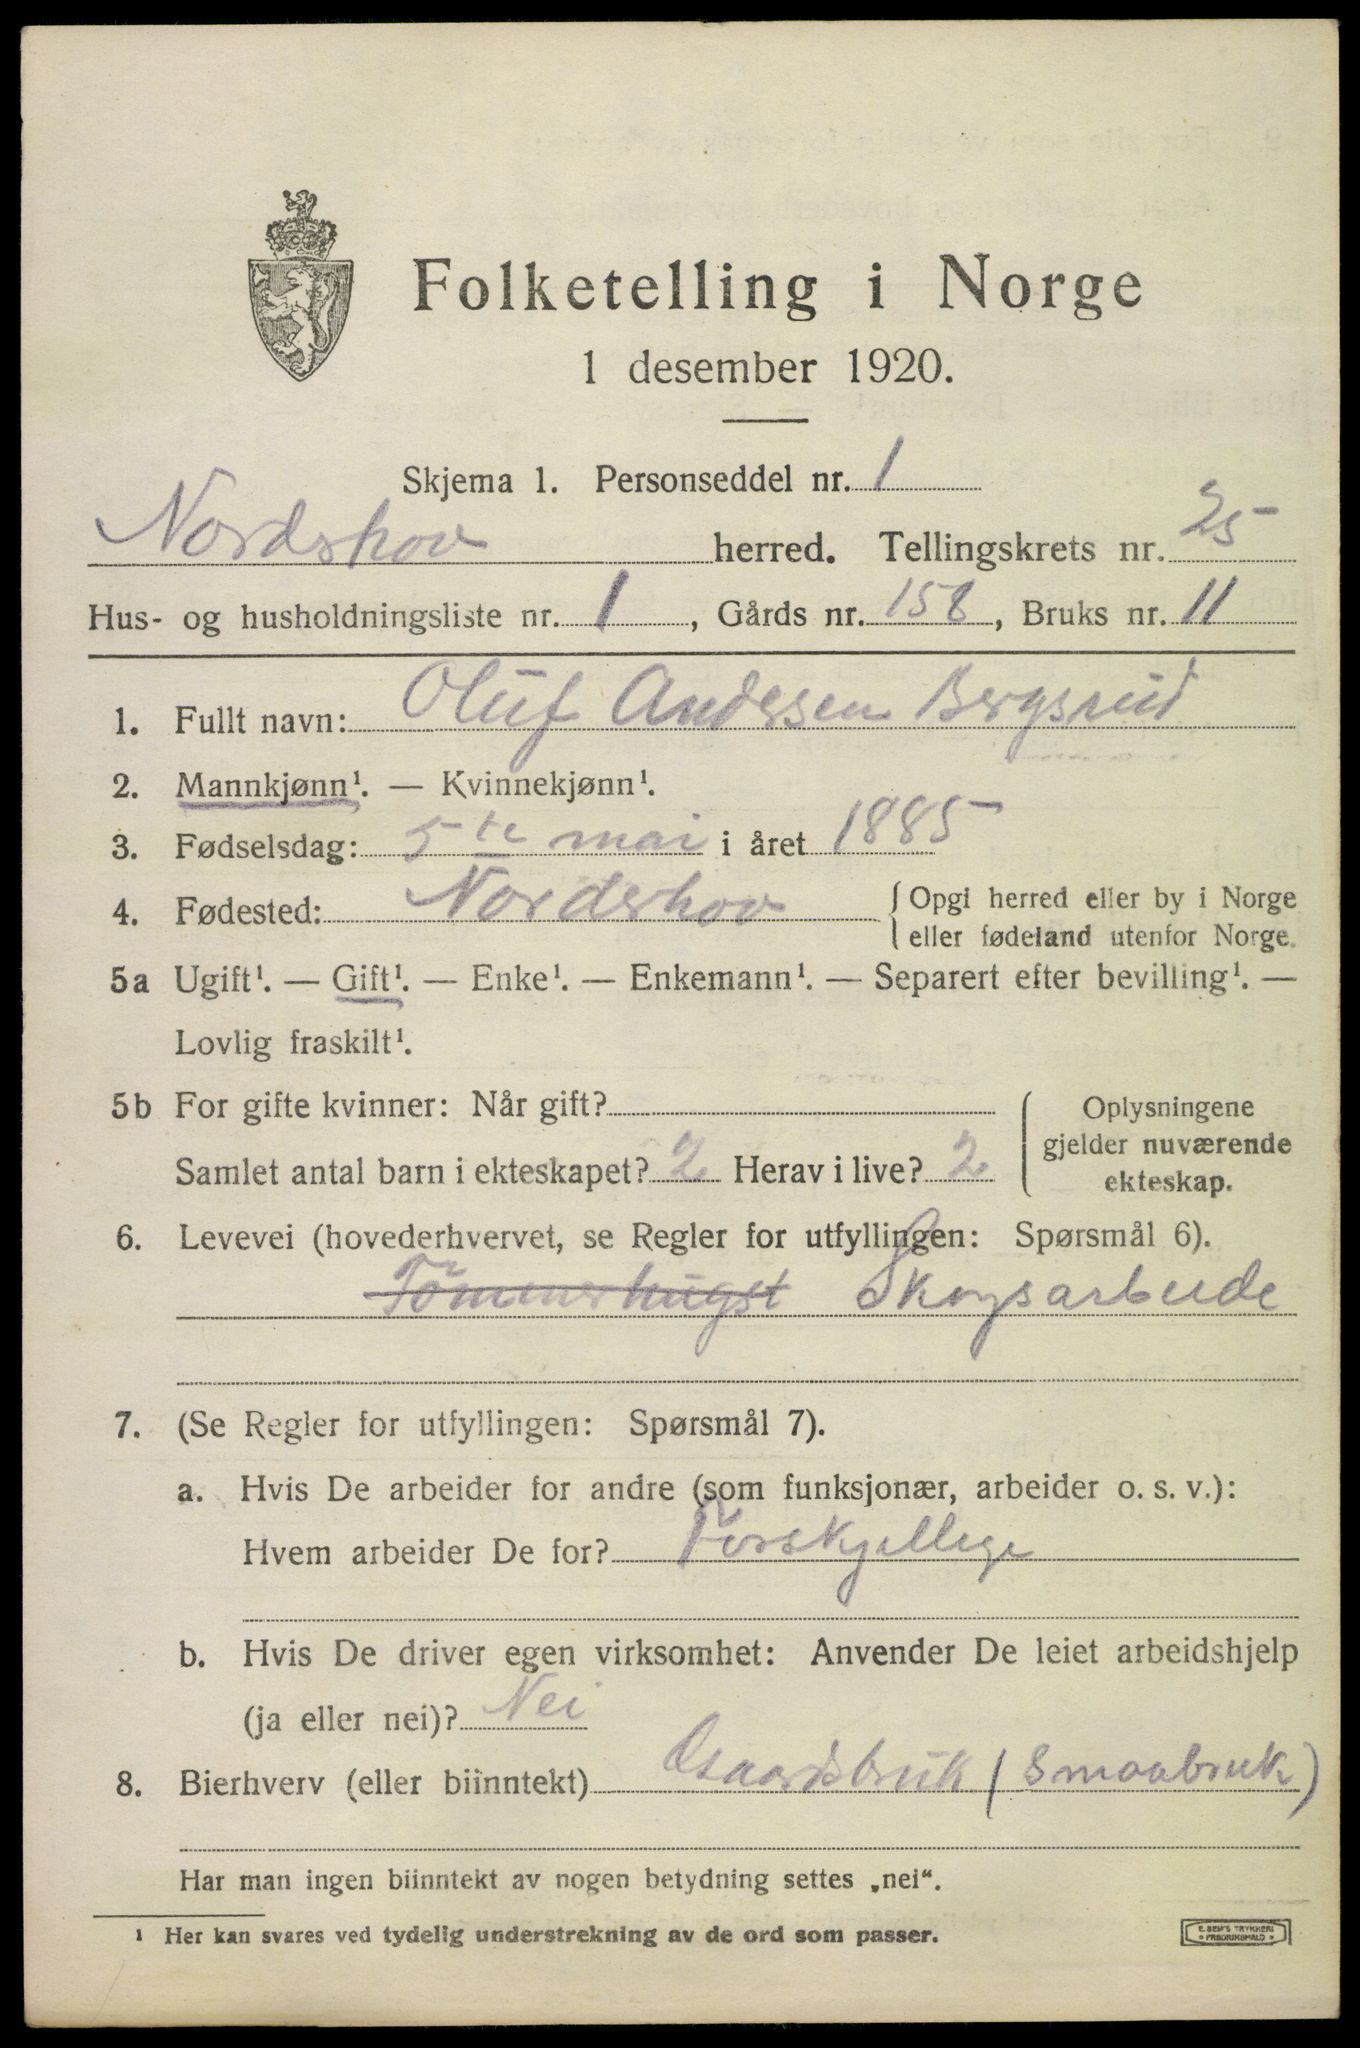 Folketelling i Norge
1 desember 1920.
Skjema 1. Personseddel nr. 1
Nordshov herred. Tellingskrets nr. 25
Hus- og husholdningsliste nr. 1, Gårds nr. 158, Bruks nr. 11
1. Fullt navn: Oluf Andersen Bergsrud
2. Mannkjønn¹. — Kvinnekjønn¹.
3. Fødselsdag: 5te mai i året 1885
4. Fødested: Norderhov { Opgi herred eller by i Norge
eller fødeland utenfor Norge.
5a Ugift¹. — Gift¹. — Enke¹. — Enkemann¹. — Separert efter bevilling¹. —
Lovlig fraskilt¹.
5b For gifte kvinner: Når gift?
Samlet antal barn i ekteskapet? 2 Herav i live? 2
{ Oplysningene
gjelder nuværende
ekteskap.
6. Levevei (hovederhvervet, se Regler for utfyllingen: Spørsmål 6).
Tömmerhugst Skogsarbeide
7. (Se Regler for utfyllingen: Spørsmål 7).
a. Hvis De arbeider for andre (som funksjonær, arbeider o. s. v.):
Hvem arbeider De for? Forskjellige
b. Hvis De driver egen virksomhet: Anvender De leiet arbeidshjelp
(ja eller nei)? Nei
8. Bierhverv (eller biinntekt) Gaardsbruk (Smaabruk)
Har man ingen biinntekt av nogen betydning settes „nei“.
¹ Her kan svares ved tydelig understrekning av de ord som passer.
E. SEM'S TRYKKERI
FREDRIKSHALD